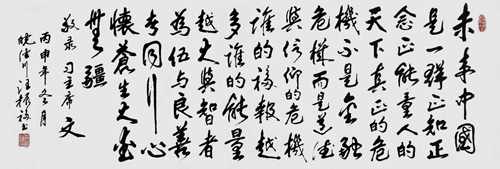 未來中國
是一群正知正
念正能量人的
天下真正的危
機不是金融
危機而是道德
與信仰的危機
誰的福報越
多誰的能量
越大與智者
為伍與良善
者同行心
懷蒼生大愛
無疆
敬录习主席文
丙申年冬月
書